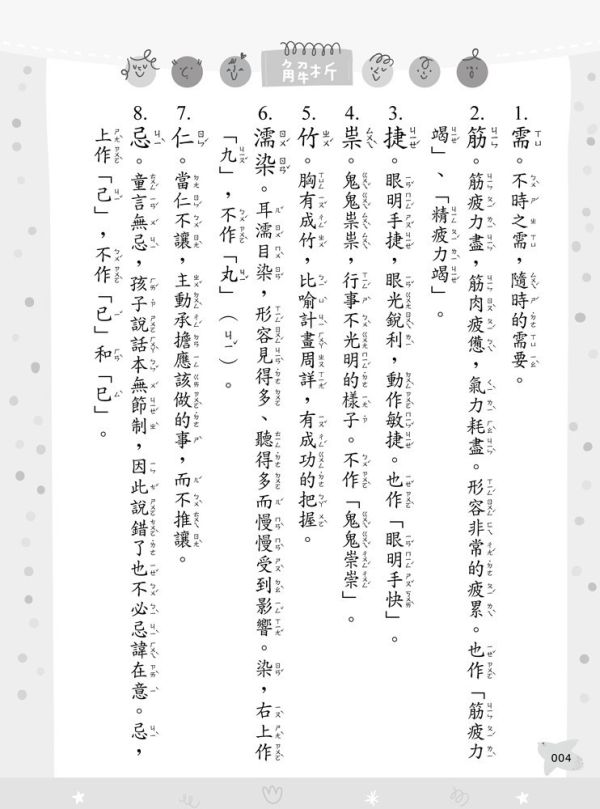 解析
1. 需。不時之需，隨時的需要。
2. 筋。筋疲力盡，筋肉疲憊，氣力耗盡。形容非常的疲累。也作「筋疲力
竭」、「精疲力竭」。
3. 捷。眼明手捷，眼光銳利，動作敏捷。也作「眼明手快」。
4. 祟。鬼鬼祟祟，行事不光明的樣子。不作「鬼鬼崇崇」。
5. 竹。胸有成竹，比喻計畫周詳，有成功的把握。
6. 濡染。耳濡目染，形容見得多、聽得多而慢慢受到影響。染，右上作
「九」，不作「丸」（ㄐㄧˇ）。
7. 仁。當仁不讓，主動承擔應該做的事，而不推讓。
8. 忌。童言無忌，孩子說話本無節制，因此說錯了也不必忌諱在意。忌，
上作「己」，不作「已」和「巳」。
004